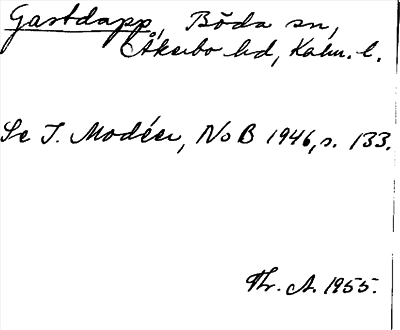 Gastdapp, Böda sn,
Åkerbo hd, Kalm. l.
Se I. Modéer, NoB 1946, s. 133.
Thr. A. 1955.